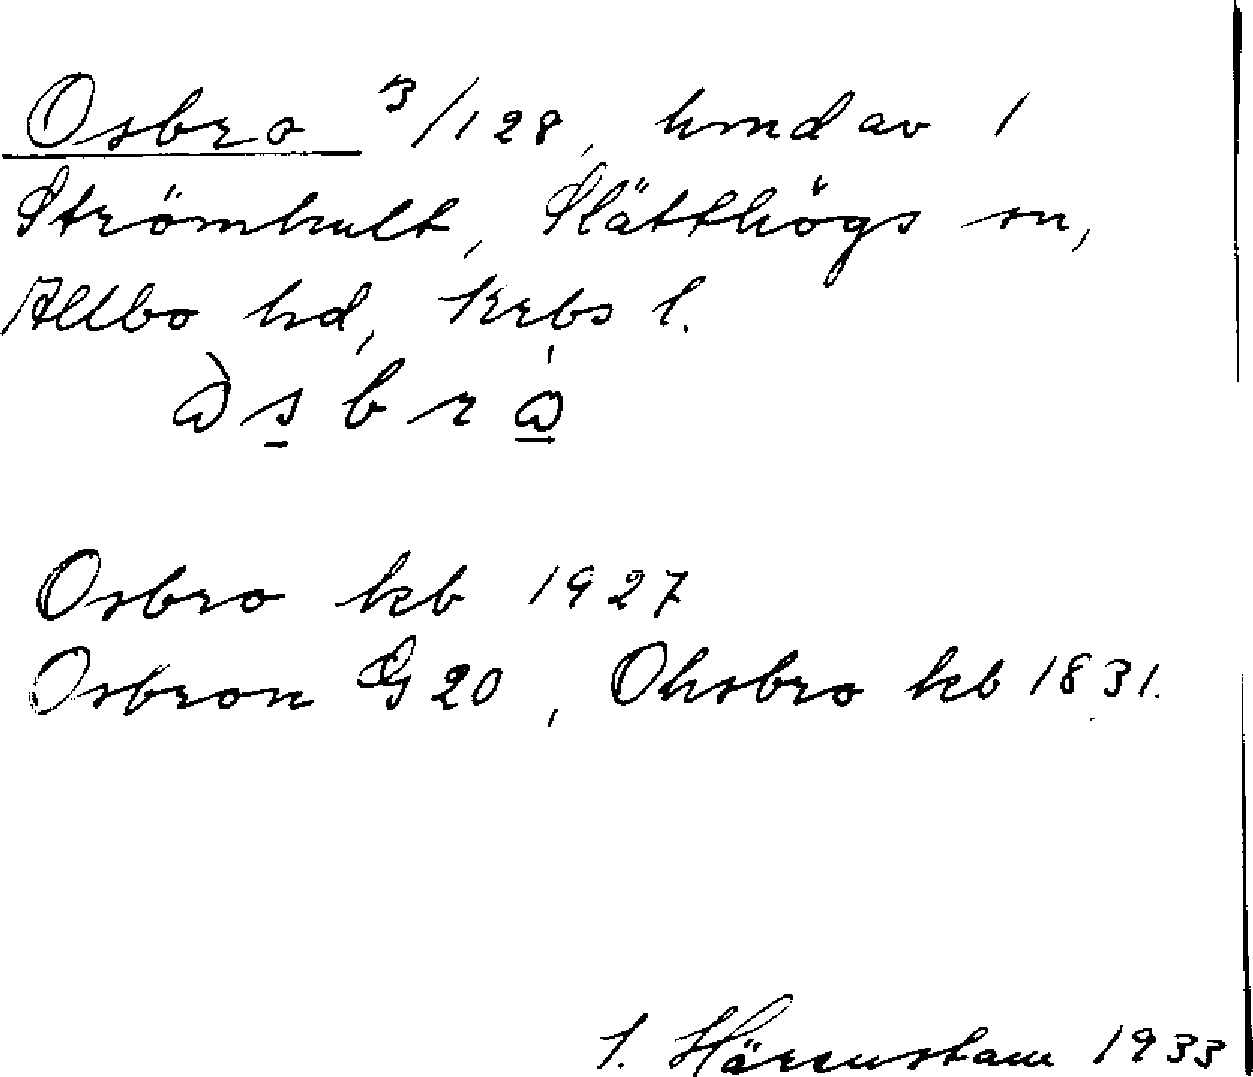 Osbro 3/128, hmd av 1
Strömhult, Slätthögs sn,
Allbo hd, Krbs l.
Osbro kb 1927
Osbron G 20, Ohsbro kb 1831.
1933